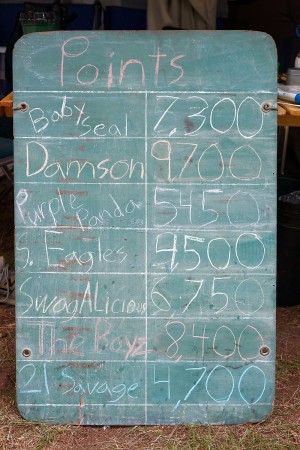 Points
Baby Seal 7,300
Damson 9700
Purple Panda 5450
S. Eagles 4500
SwagALicious 6,750
The Boyz 8400
21 Savage 4,700